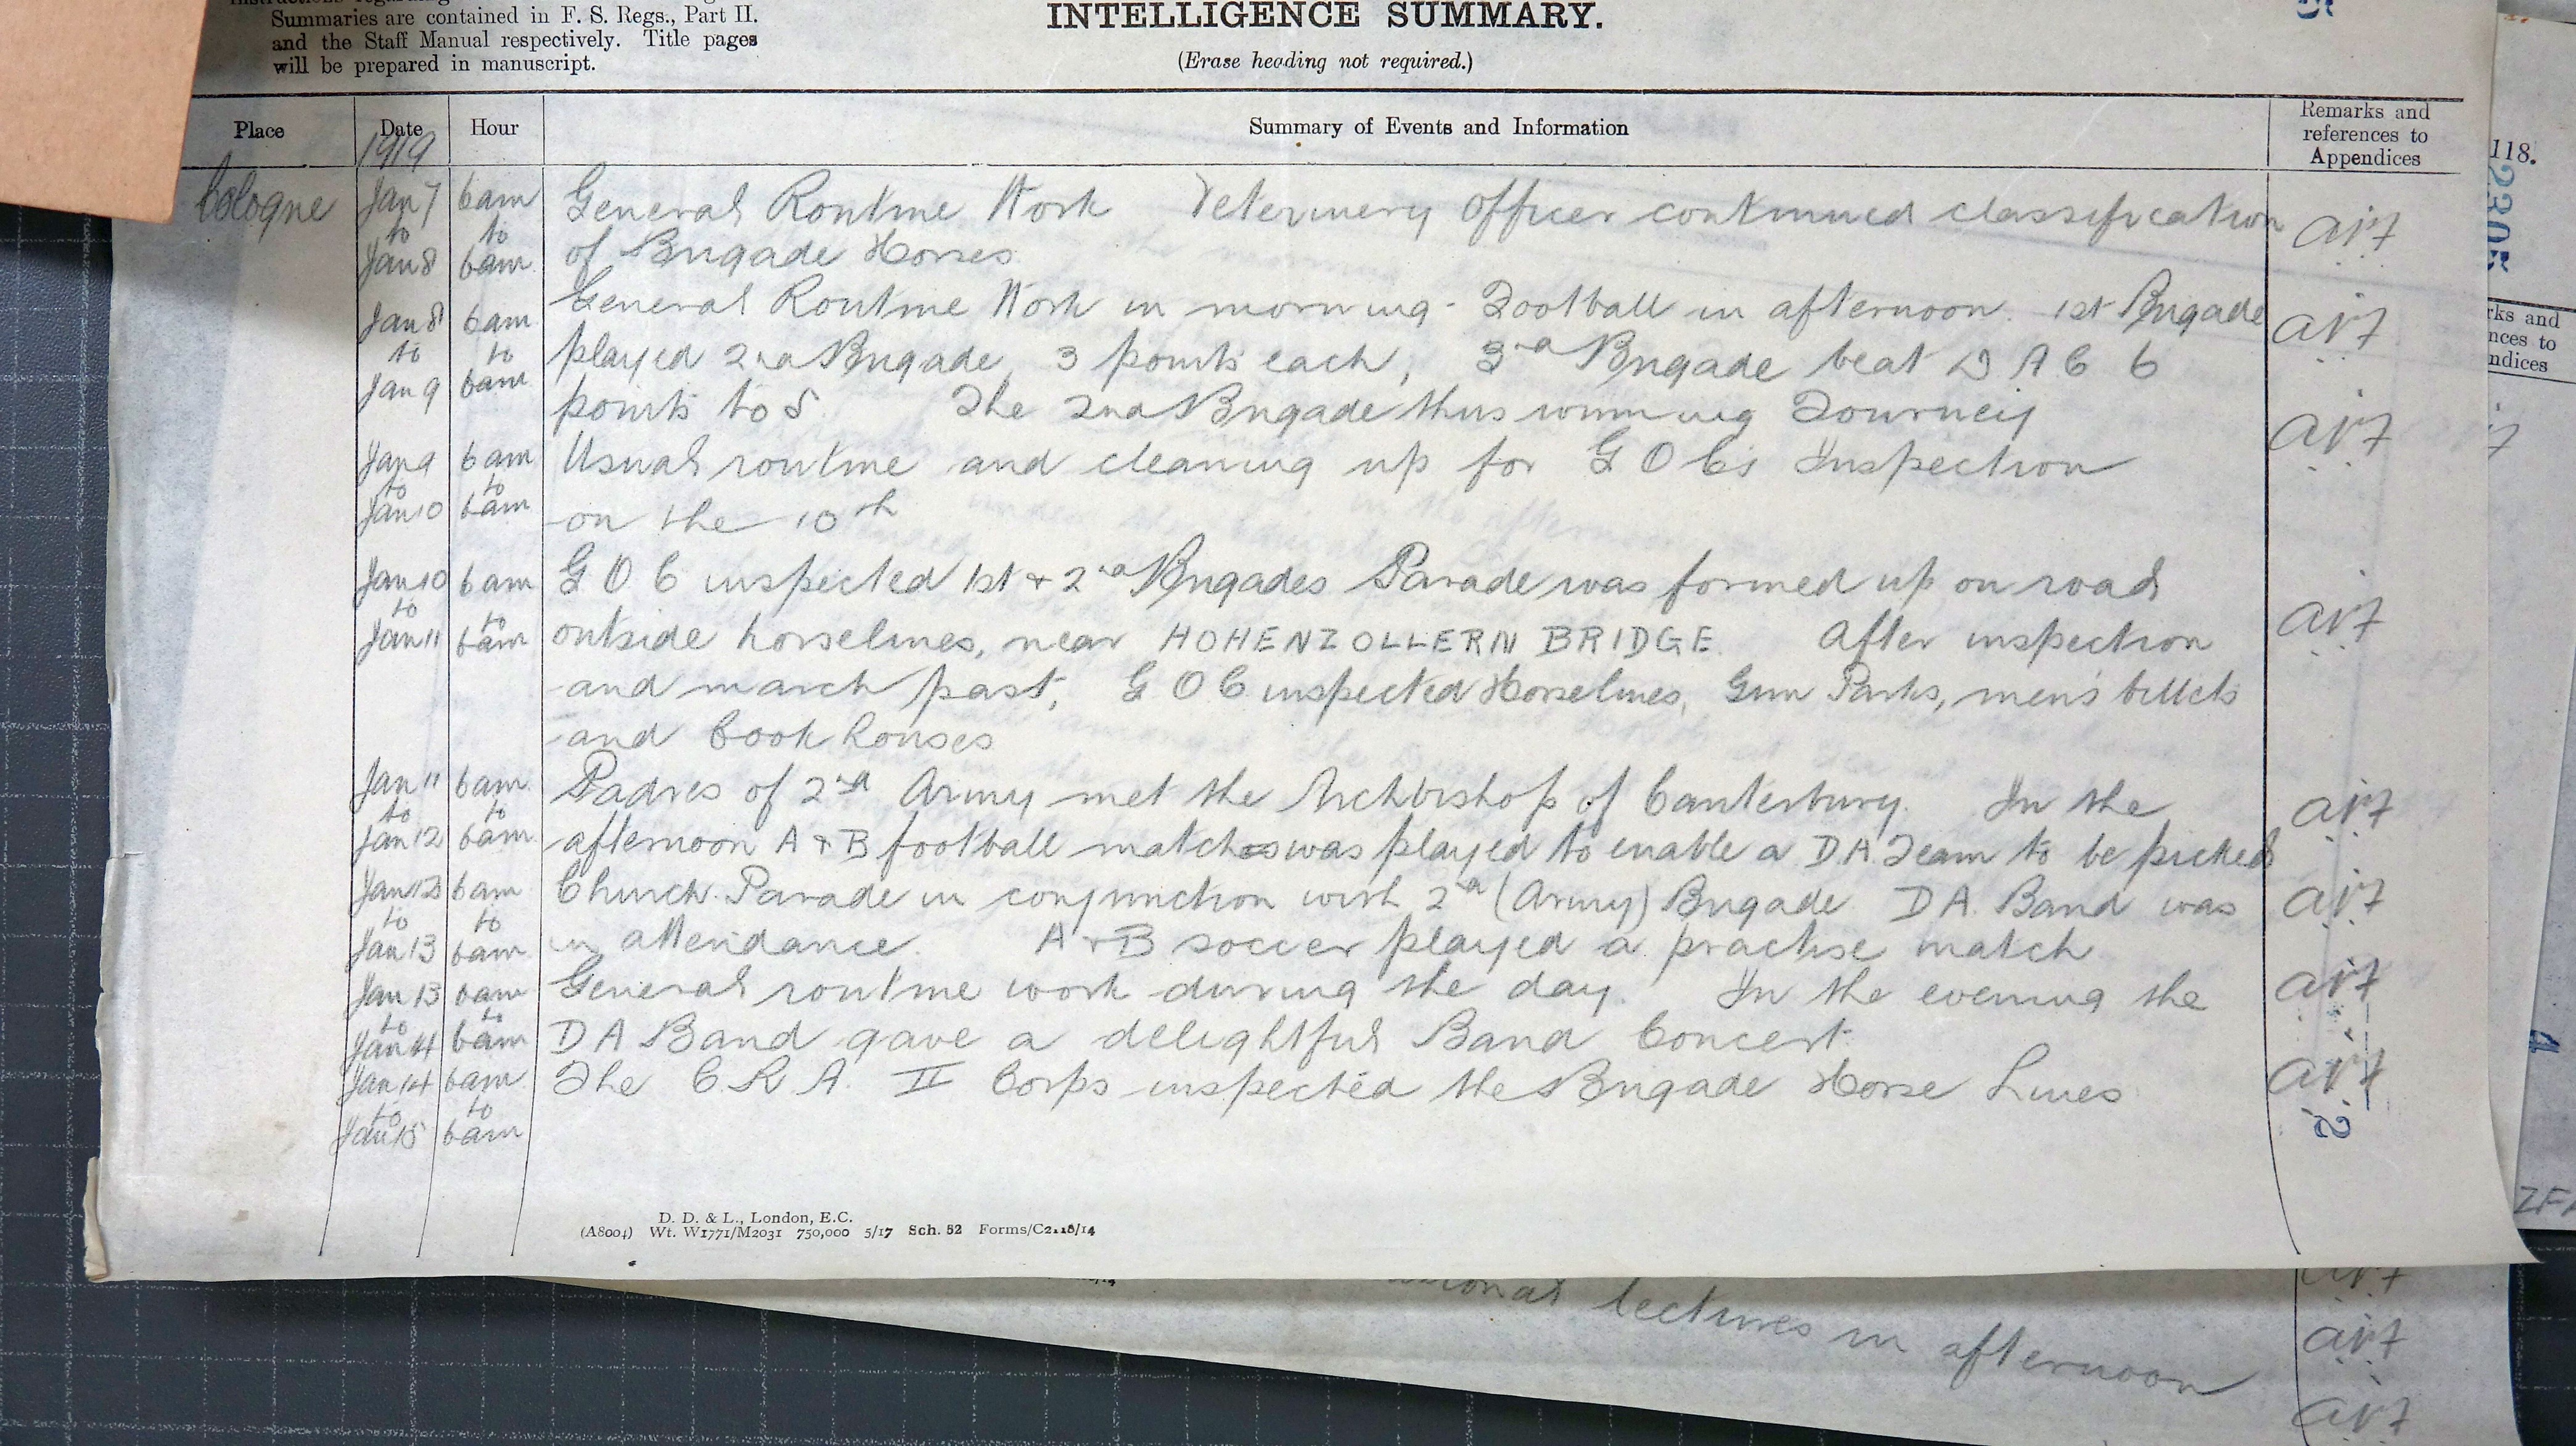 Summaries are contained in F. S. Regs., Part II.
and the Staff Manual respectively. Title pages
will be prepared in manuscript.
INTELLIGENCE SUMMARY.
(Erase heading not required.)
Place Date Hour Summary of Events and Information Remarks and references to Appendices
1919
Cologne Jan 7 to Jan 8 6am to 6am General Routine Work Veterinery Officer continued classification
of Brigade Horses
Jan 8 to Jan 9 6am to 6am General Routine Work in morning - Football in afternoon. 1st Brigade
played 2nd Brigade, 3 points each, 3rd Brigade beat D A C 6
points to 5. The 2nd Brigade thus winning Tourney
Jan 9 to Jan 10 6am to 6am Usual routine and cleaning up for G O C's Inspection
on the 10th
Jan 10 to Jan 11 6am to 6am G O C inspected 1st + 2nd Brigades Parade was formed up on road
outside horselines, near HOHENZOLLERN BRIDGE. After inspection
and march past, G O C inspected Horselines, Gun Parks, men's billets
and Cook houses
Jan 11 to Jan 12 6am to 6am Padres of 2nd Army met the Archbishop of Canterbury. In the
afternoon A + B football match was played to enable a D.A. Team to be picked
Jan 12 to Jan 13 6am to 6am Church Parade in conjunction with 2nd (Army) Brigade. D A. Band was
in attendance. A + B soccer played a practise match
Jan 13 to Jan 14 6am to 6am General routine work during the day. In the evening the
D A Band gave a delightful Band Concert.
Jan 14 to Jan 15 6am to 6am The C. R. A. II Corps inspected the Brigade Horse Lines
D. D. & L., London, E.C.
(A8004) Wt. W1771/M2031 750,000 5/17 Sch. 52 Forms/C2118/14
lectures in afternoon
118.
2305